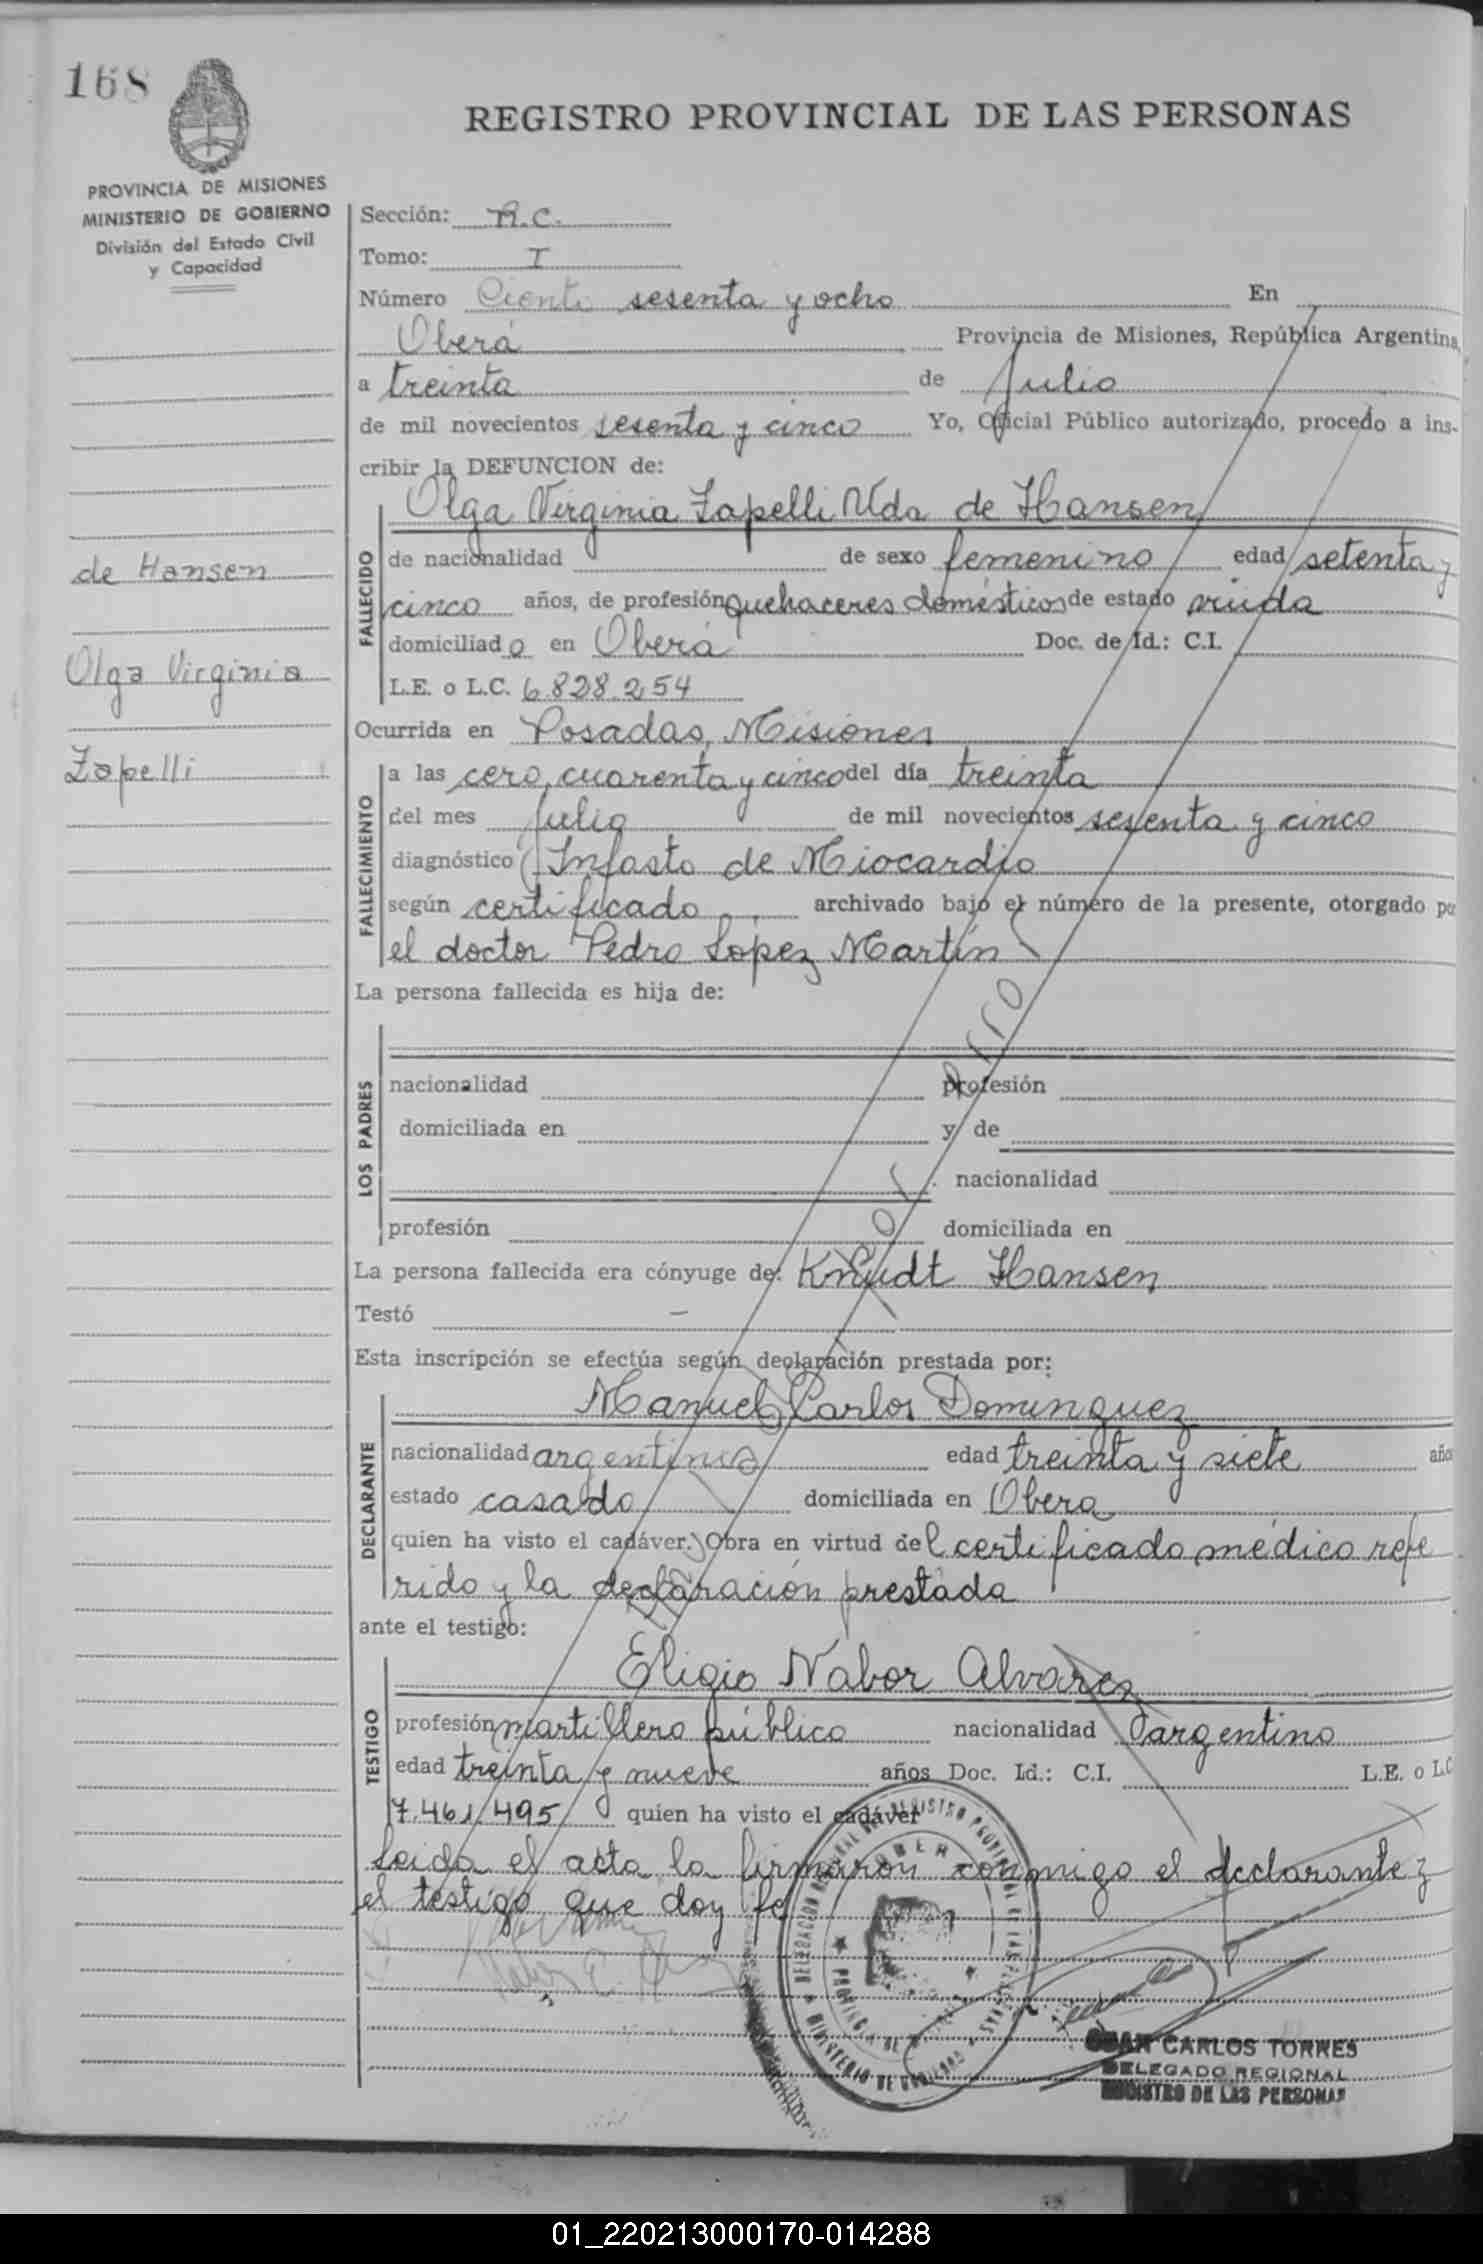 168
REGISTRO PROVINCIAL DE LAS PERSONAS
PROVINCIA DE MISIONES
MINISTERIO DE GOBIERNO
División del Estado Civil
y Capacidad
de Hansen
Olga Virginia
Zapelli
Sección: R.C.
Tomo: I
Número Ciento sesenta y ocho En
Oberá Provincia de Misiones, República Argentina,
a treinta de Julio
de mil novecientos sesenta y cinco Yo, Oficial Público autorizado, procedo a ins-
cribir la DEFUNCION de:
Olga Virginia Zapelli Vda de Hansen
FALLECIDO
de nacionalidad de sexo femenino edad setenta y
cinco años, de profesión quehaceres domésticos de estado viuda
domiciliado en Oberá Doc. de Id.: C.I.
L.E. o L.C. 6.828.254
Ocurrida en Posadas, Misiones
FALLECIMIENTO
a las cero, cuarenta y cinco del día treinta
del mes Julio de mil novecientos sesenta y cinco
diagnóstico Infasto de Miocardio
según certificado archivado bajo el número de la presente, otorgado por
el doctor Pedro Lopez Martín
La persona fallecida es hija de:
LOS PADRES
nacionalidad profesión
domiciliada en y de
nacionalidad
profesión domiciliada en
La persona fallecida era cónyuge de: Knudt Hansen
Testó —
Esta inscripción se efectúa según declaración prestada por:
Manuel Carlos Dominguez
DECLARANTE
nacionalidad argentina edad treinta y siete año
estado casado domiciliada en Obera
quien ha visto el cadáver. Obra en virtud del certificado médico refe
rido y la declaración prestada
ante el testigo:
Eligio Nabor Alvarez
TESTIGO
profesión martillero público nacionalidad argentino
edad treinta y nueve años Doc. Id.: C.I. L.E. o L.C
7.461.495 quien ha visto el cadáver
Leida el acta la firmaron conmigo el declarante y
el testigo que doy fe
JUAN CARLOS TORRES
DELEGADO REGIONAL
REGISTRO DE LAS PERSONAS
01_220213000170-014288